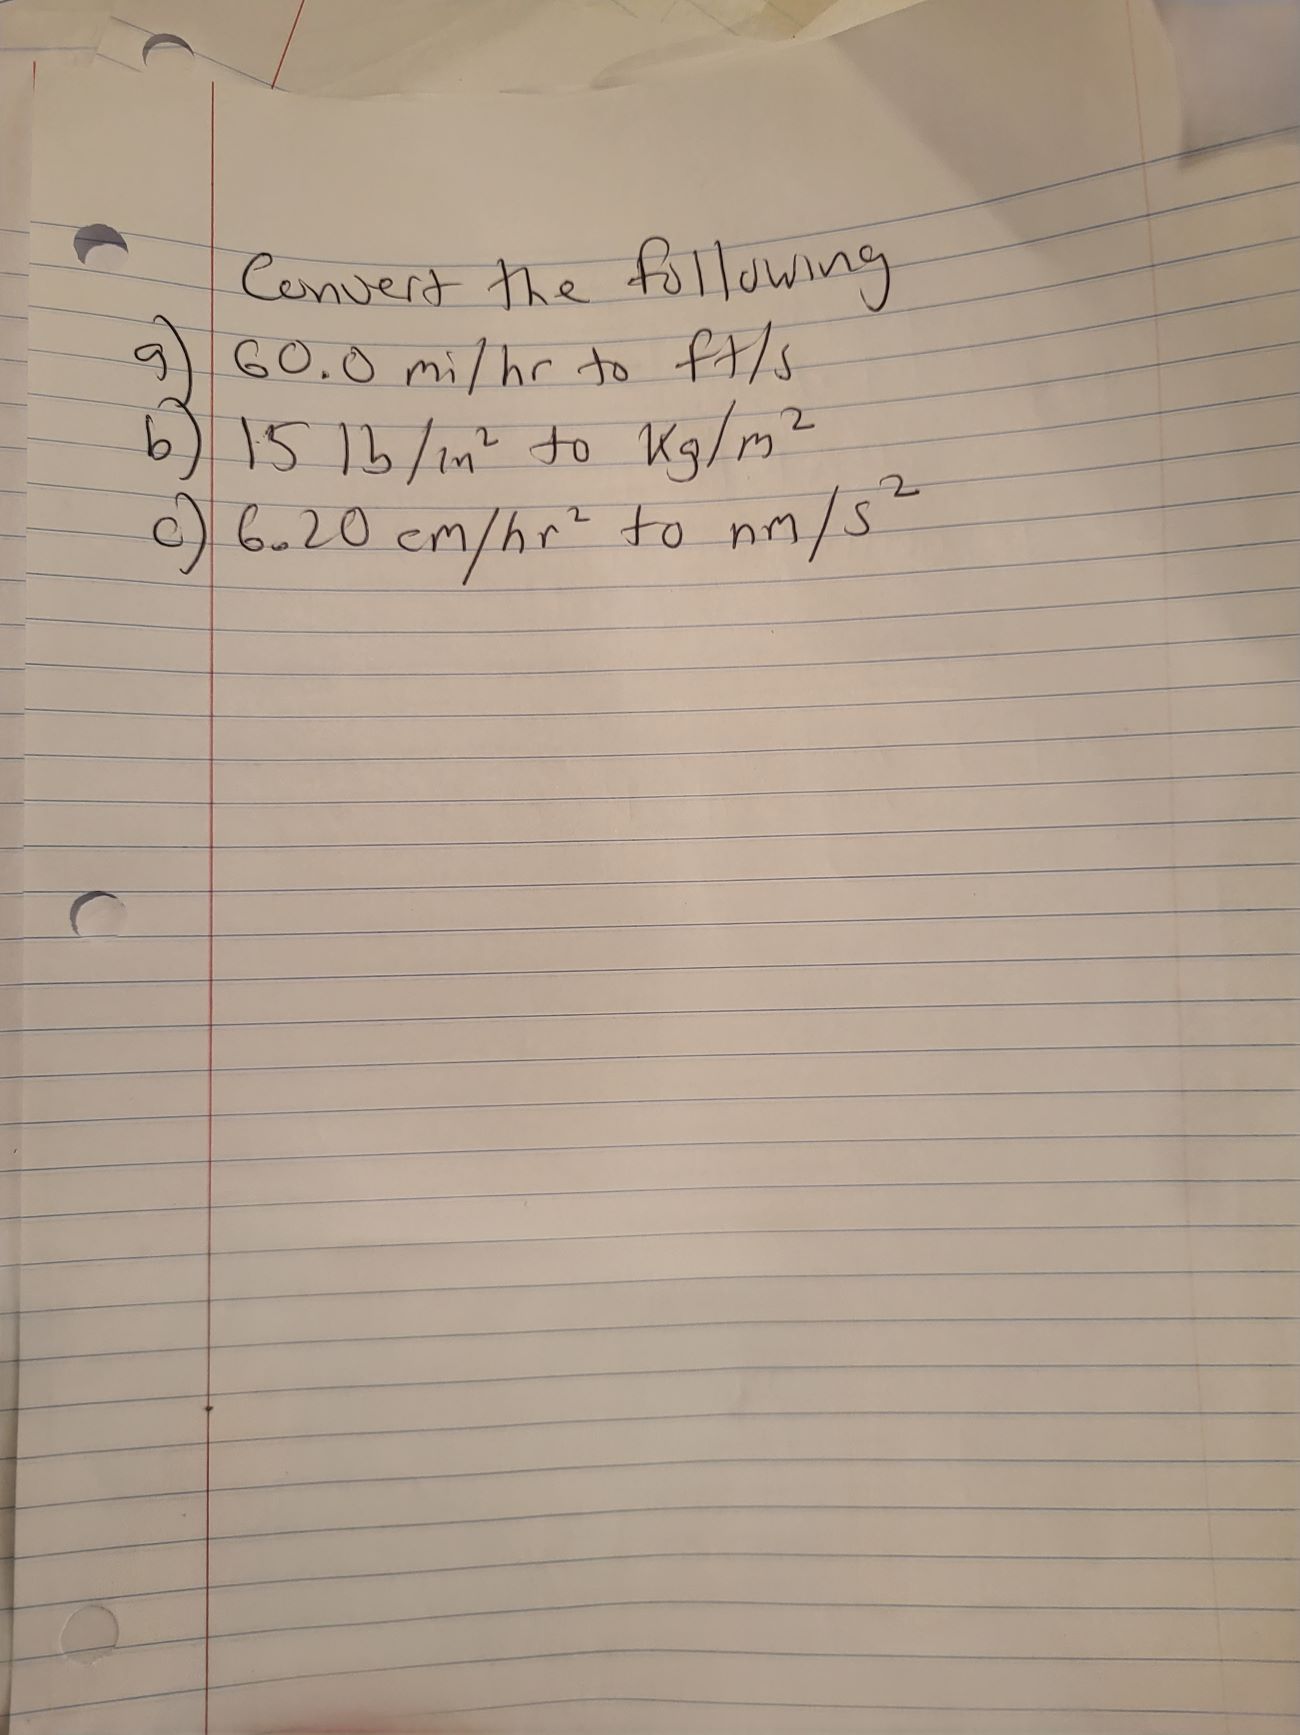 Convert the following
a) 60.0 mi/hr to ft/s
b) 15 lb/in² to kg/m²
c) 6.20 cm/hr² to nm/s²